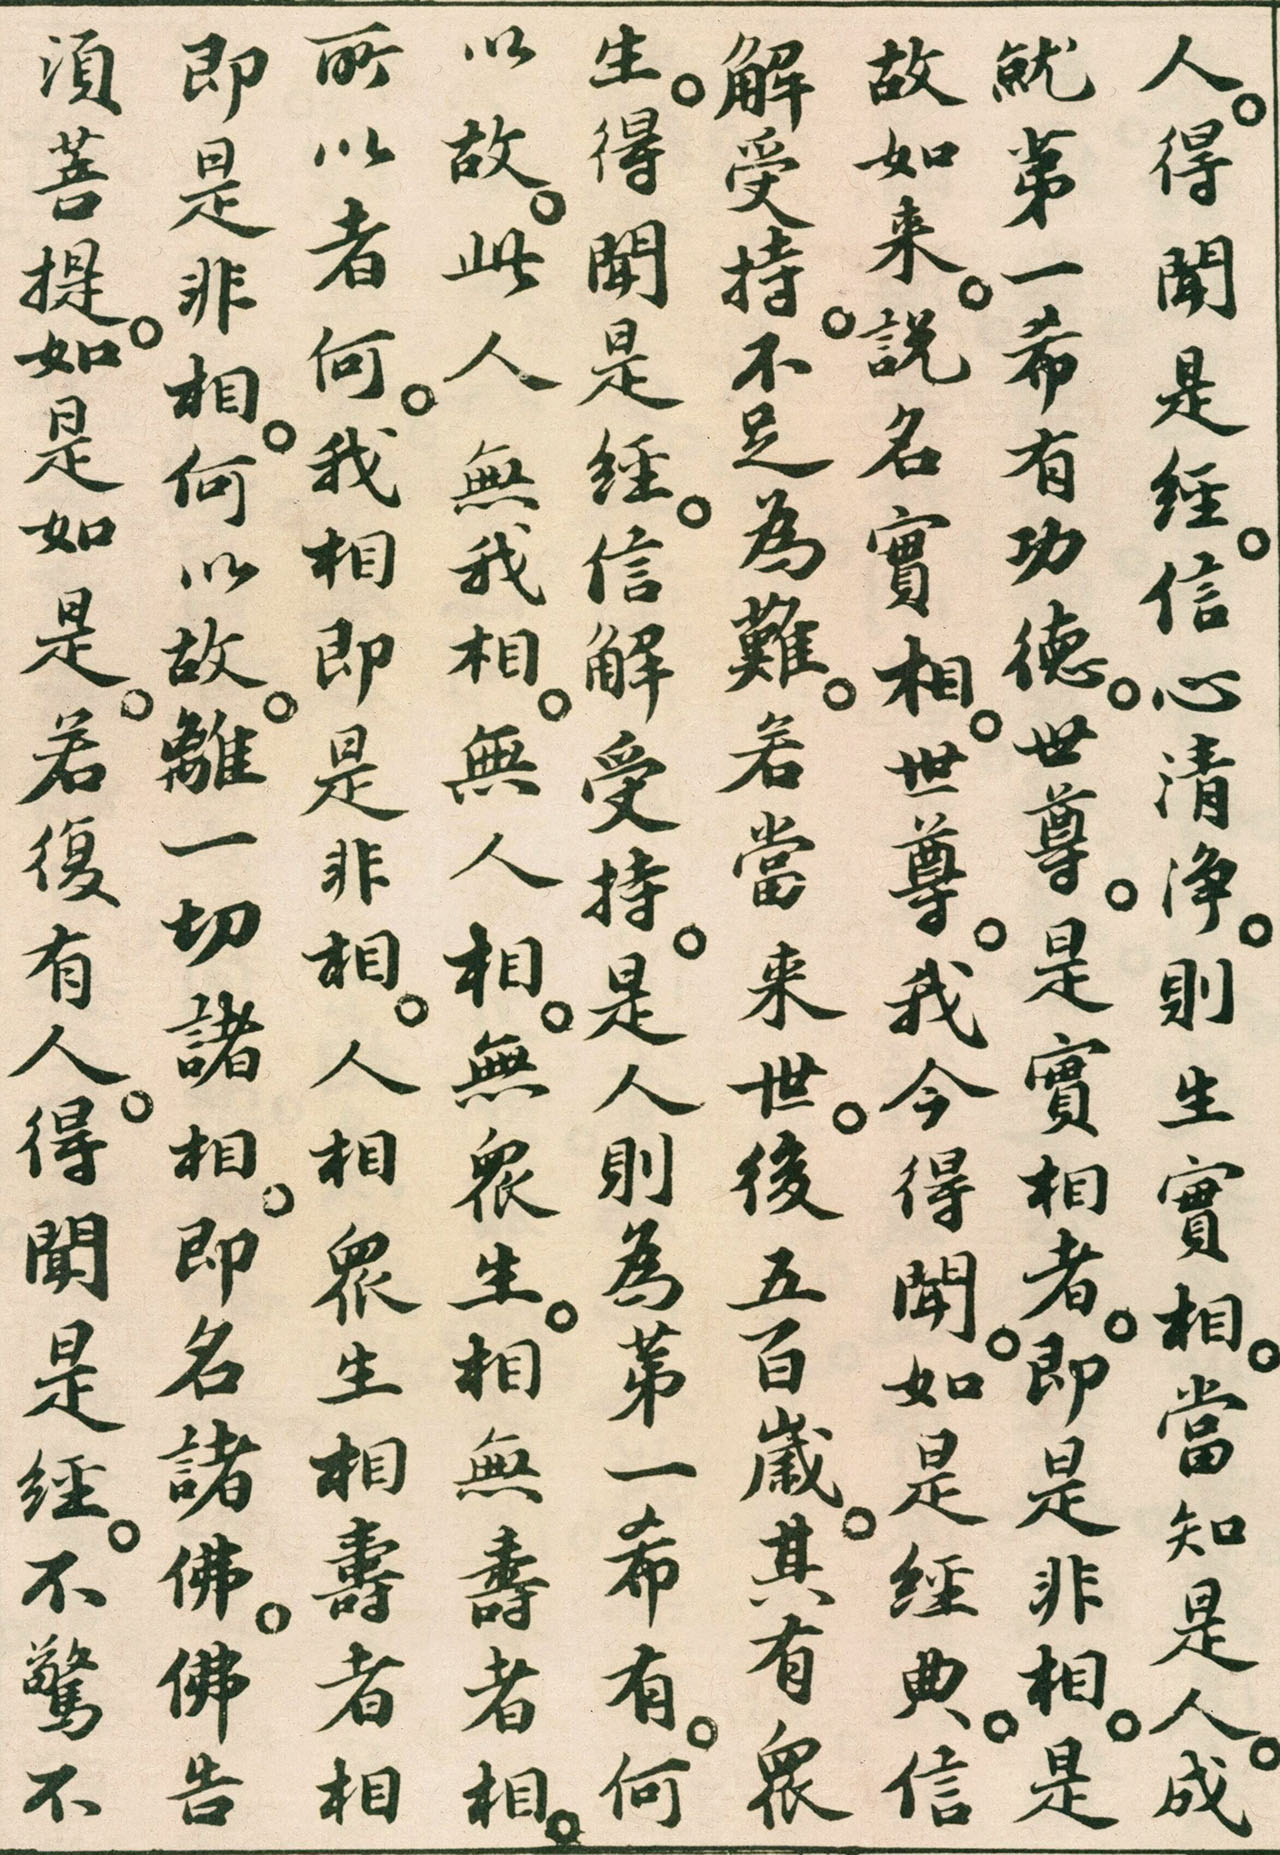 人。得聞是經。信心清淨。則生實相。當知是人。成
就第一希有功德。世尊。是實相者。即是非相。是
故如来。説名實相。世尊。我今得聞。如是經典。信
解受持。不足為難。若當来世。後五百歲。其有眾
生。得聞是經。信解受持。是人則為第一希有。何
以故。此人無我相。無人相。無眾生。相無壽者相。
所以者何。我相即是非相。人相眾生相壽者相
即是非相。何以故。離一切諸相。即名諸佛。佛告
須菩提。如是如是。若復有人。得聞是經。不驚不